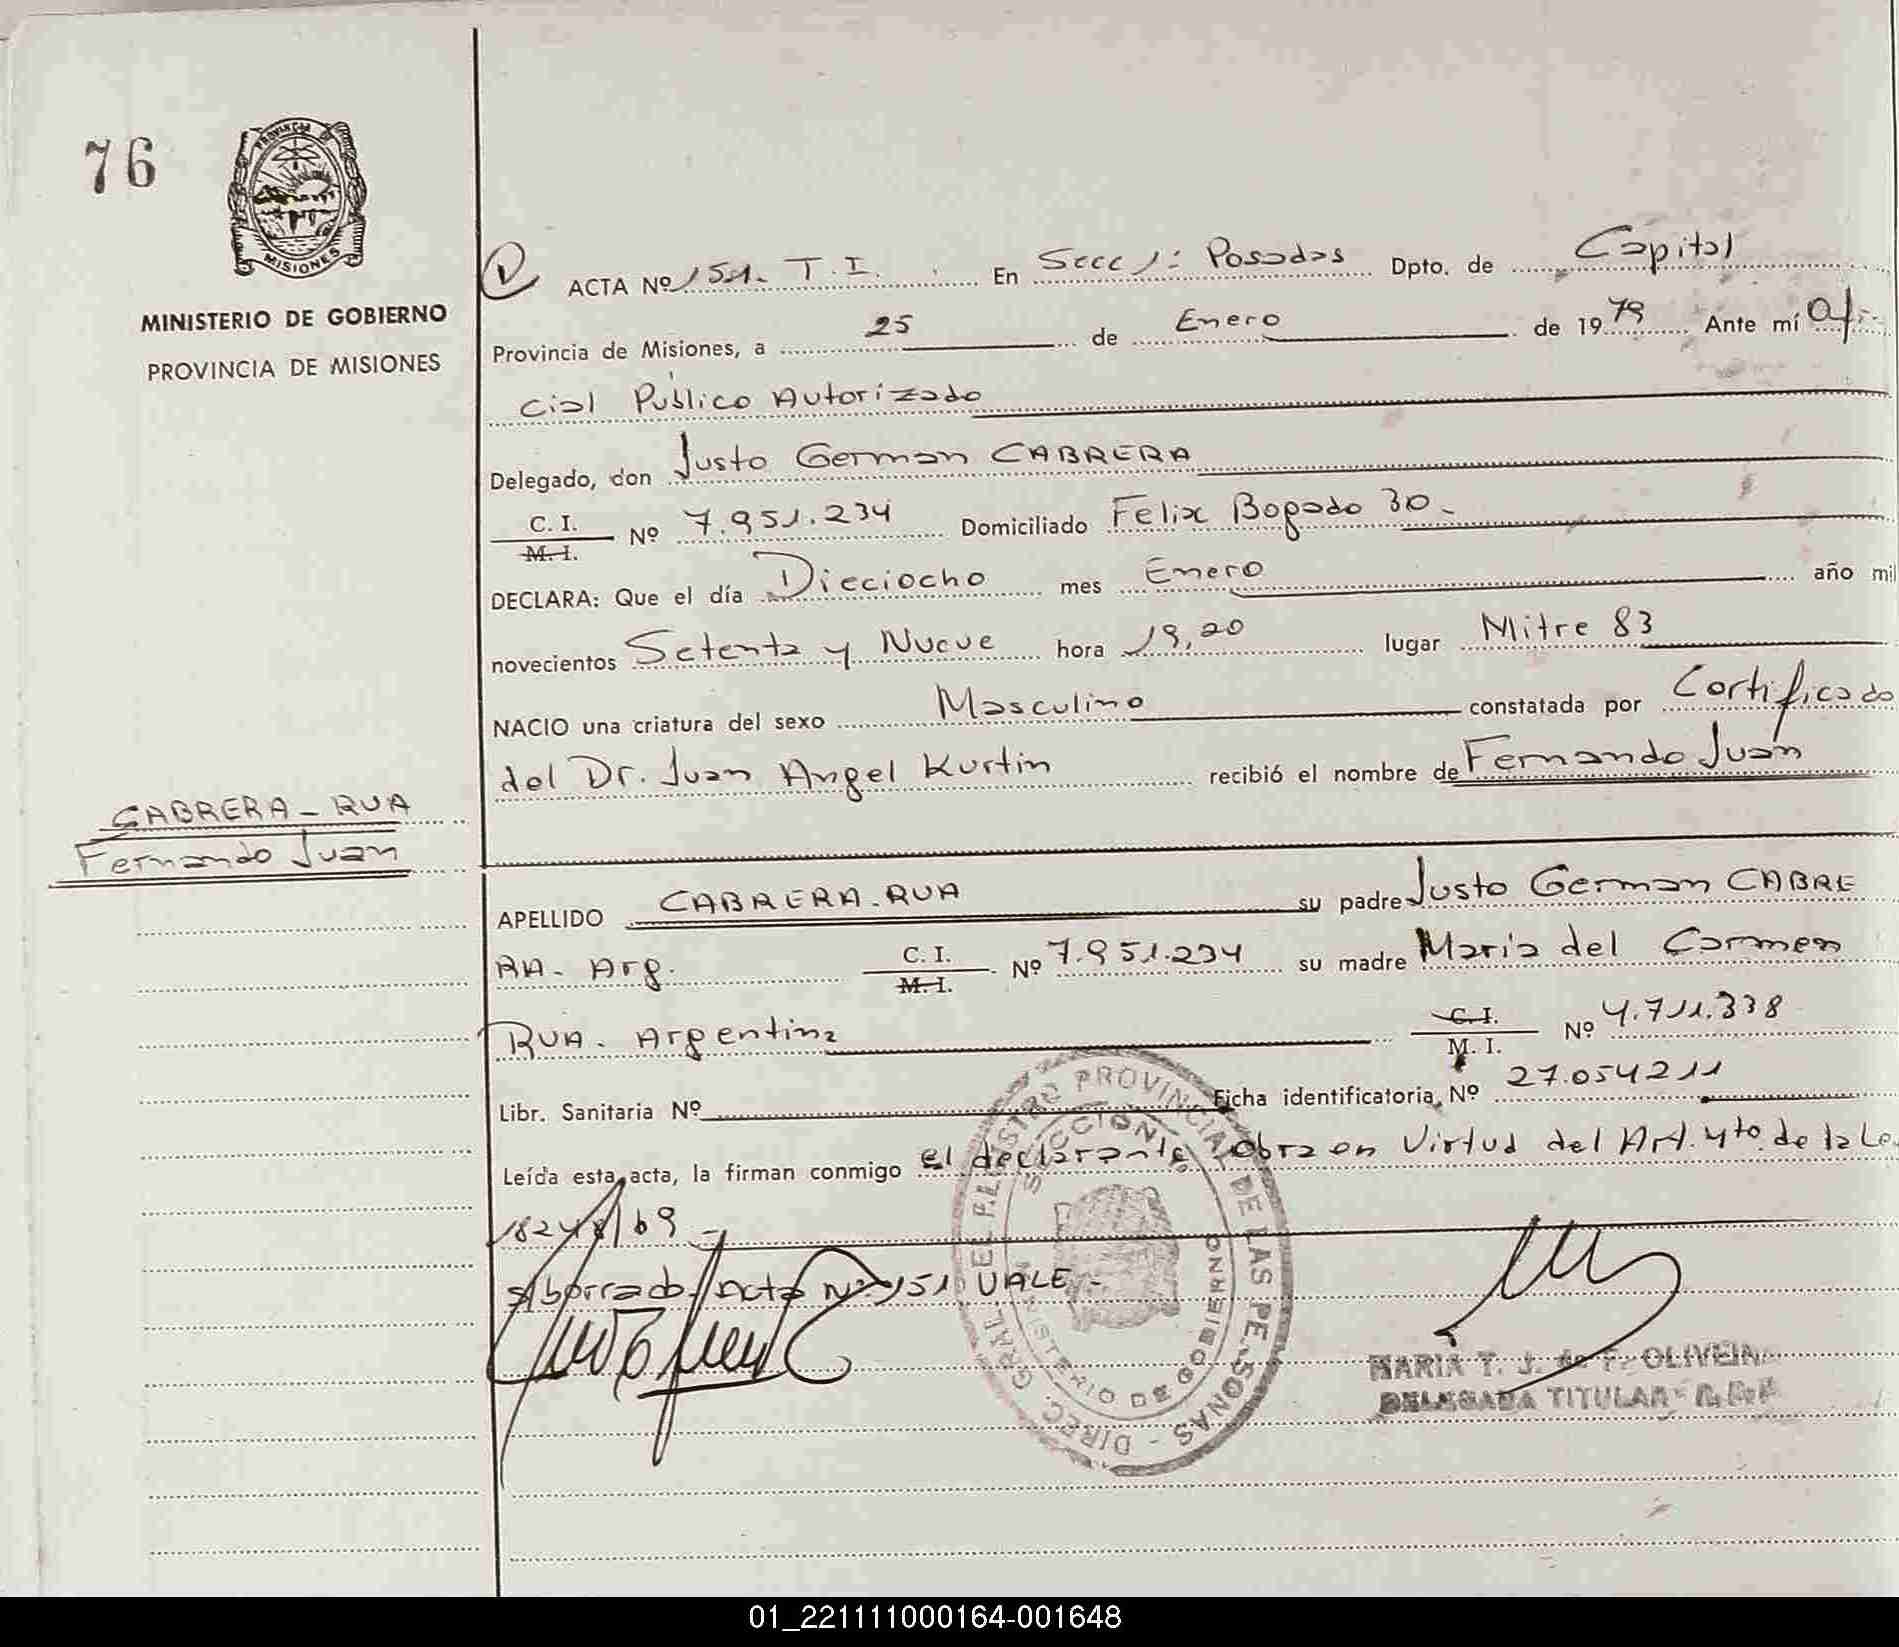 76
PROVINCIA DE
MISIONES
MINISTERIO DE GOBIERNO
PROVINCIA DE MISIONES
CABRERA - RUA
Fernando Juan
V ACTA Nº 151. T.I. En Secc 1: Posadas Dpto. de Capital
Provincia de Misiones, a 25 de Enero de 1979 Ante mí Ofi-
cial Público Autorizado
Delegado, don Justo German CABRERA
C. I. M. I. Nº 7.951.234 Domiciliado Felix Bogado 30.
DECLARA: Que el día Dieciocho mes Enero año mil
novecientos Setenta y Nueve hora 19,20 lugar Mitre 83
NACIO una criatura del sexo Masculino constatada por Certificado
del Dr. Juan Angel Kurtin recibió el nombre de Fernando Juan
APELLIDO CABRERA-RUA su padre Justo German CABRE
RA- Arg. C. I. M. I. Nº 7.951.234 su madre Maria del Carmen
RUA. Argentina C. I. M. I. Nº 4.711.338
Libr. Sanitaria Nº Ficha identificatoria Nº 27.054211
Leída esta acta, la firman conmigo el declarante, obra en Virtud del Art. 4to. de la Le
18248/69
s/borrado. acta Nº 151 VALE-
DIREC. GRAL. DEL REGISTRO PROVINCIAL DE LAS PERSONAS -
SECCION
MINISTERIO DE GOBIERNO
MARIA T. J. de F. OLIVEIRA
DELEGADA TITULAR
01_221111000164-001648